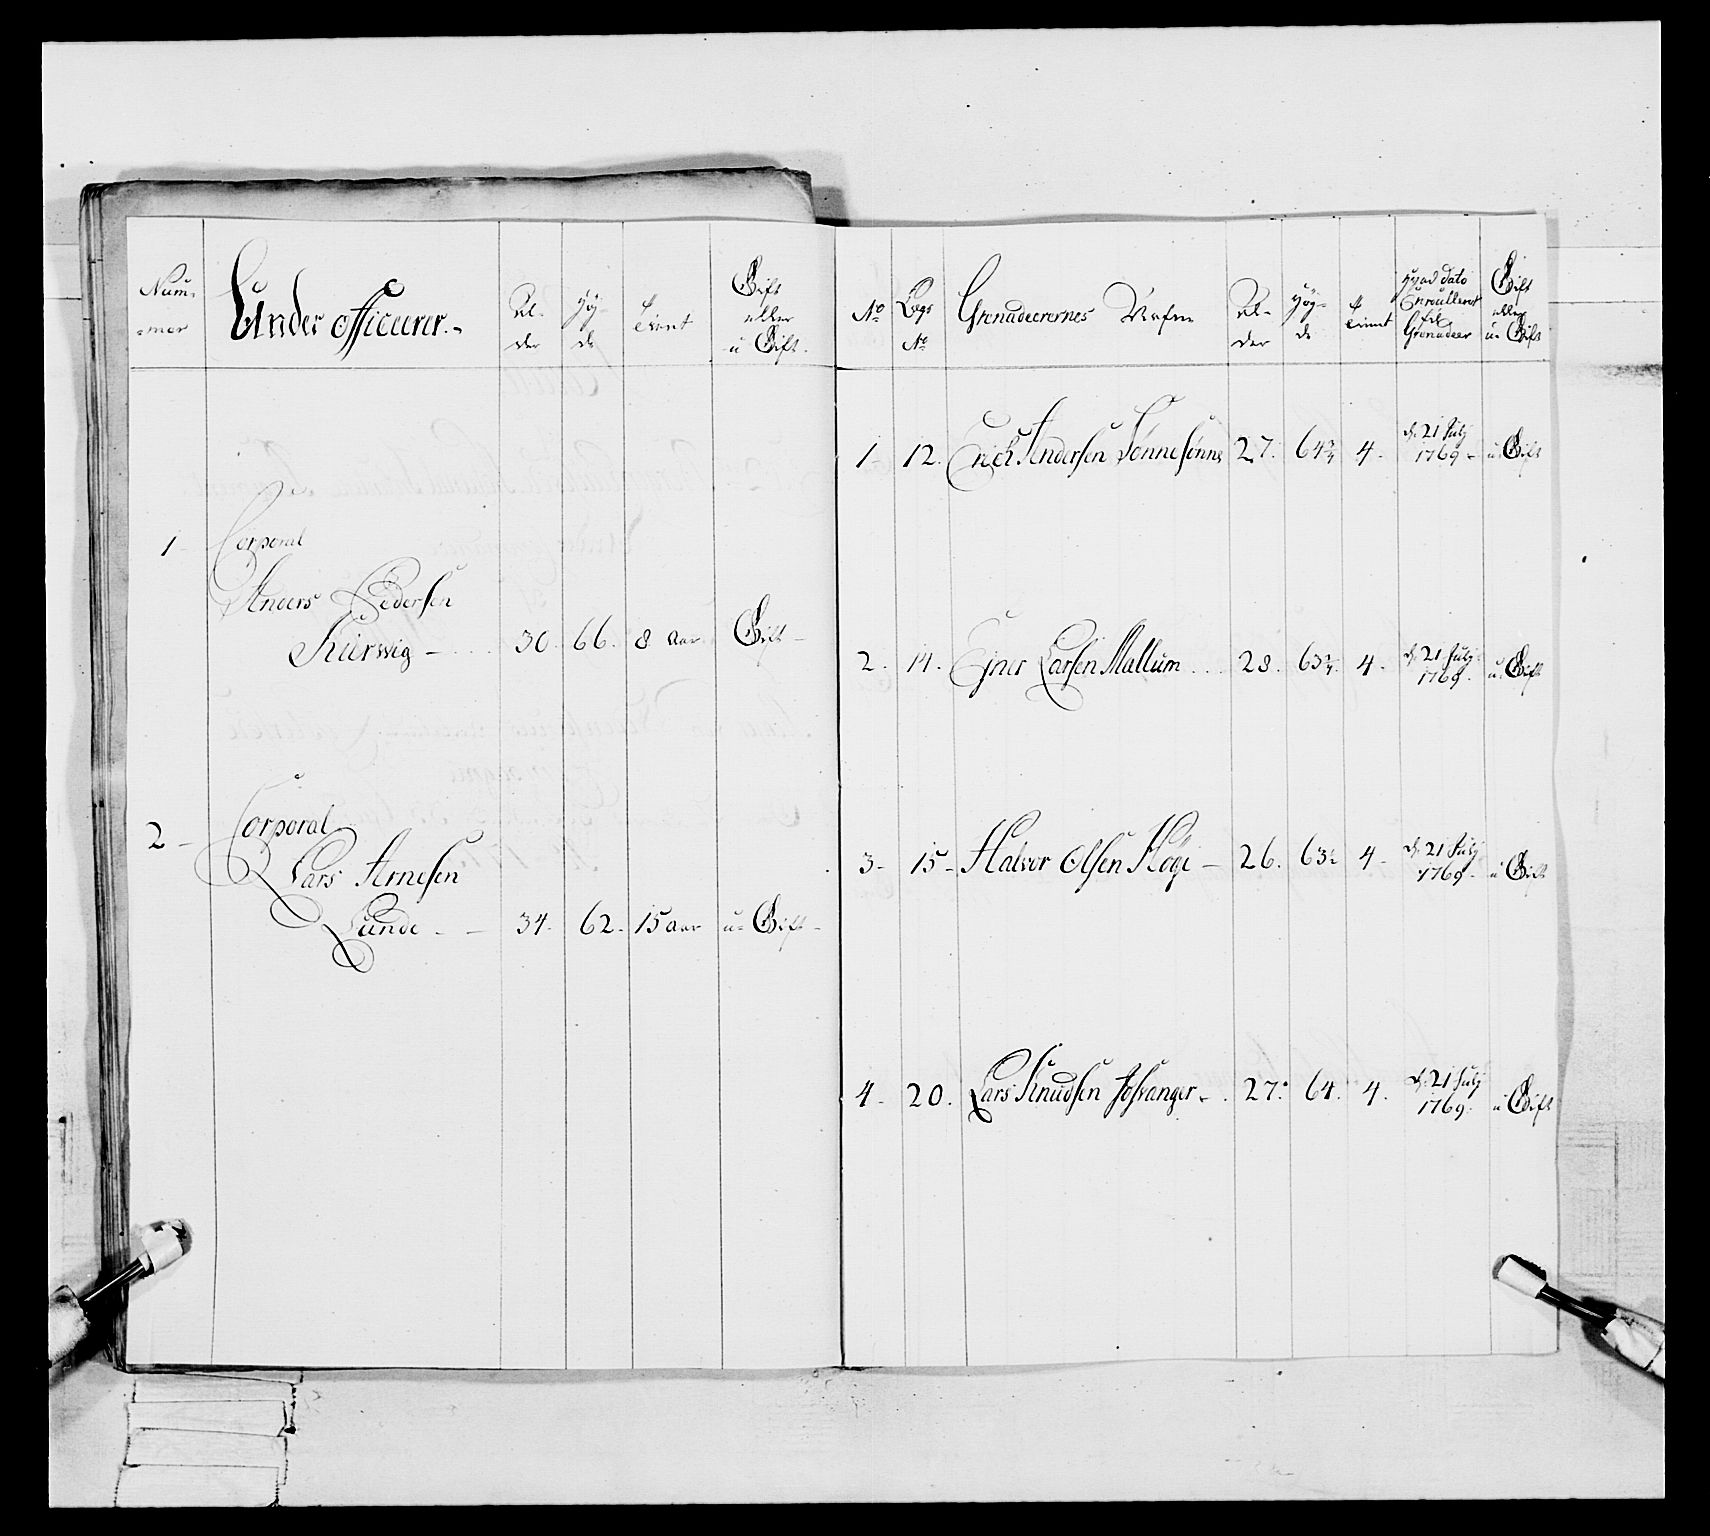 Num-
-mer
Under Officerer.-
Al-
der
Höy-
de
Tient
Gift
eller
u Gift.
1- Corporal
Anders Pedersen
Kürwig - 30. 66. 8 Aar. Gift-
2- Corporal
Lars Arnesen
Lunde - - 34. 62. 15 Aar u- Gift-
No
Legs
No
Grenadeerernes Nafne
Al-
der
Höy-
de
Tient
Hvad dato
Enroulleret
til
Grenadeer
Gift
eller
u- Gift
1- 12. Erich Andersen Tønnesønne 27. 64¾ 4. d. 21 Julj
1769- u- Gift
2. 14. Ejner Larsen Mallum 28. 63¾ 4. d. 21 Julj
1769. u- Gift
3- 15- Halvor Olsen Høye- 26. 63½ 4- d. 21 Julj
1769- u Gift
4- 20. Lars Knudsen 27. 64. 4. d. 21 Julj
1769. u Gift